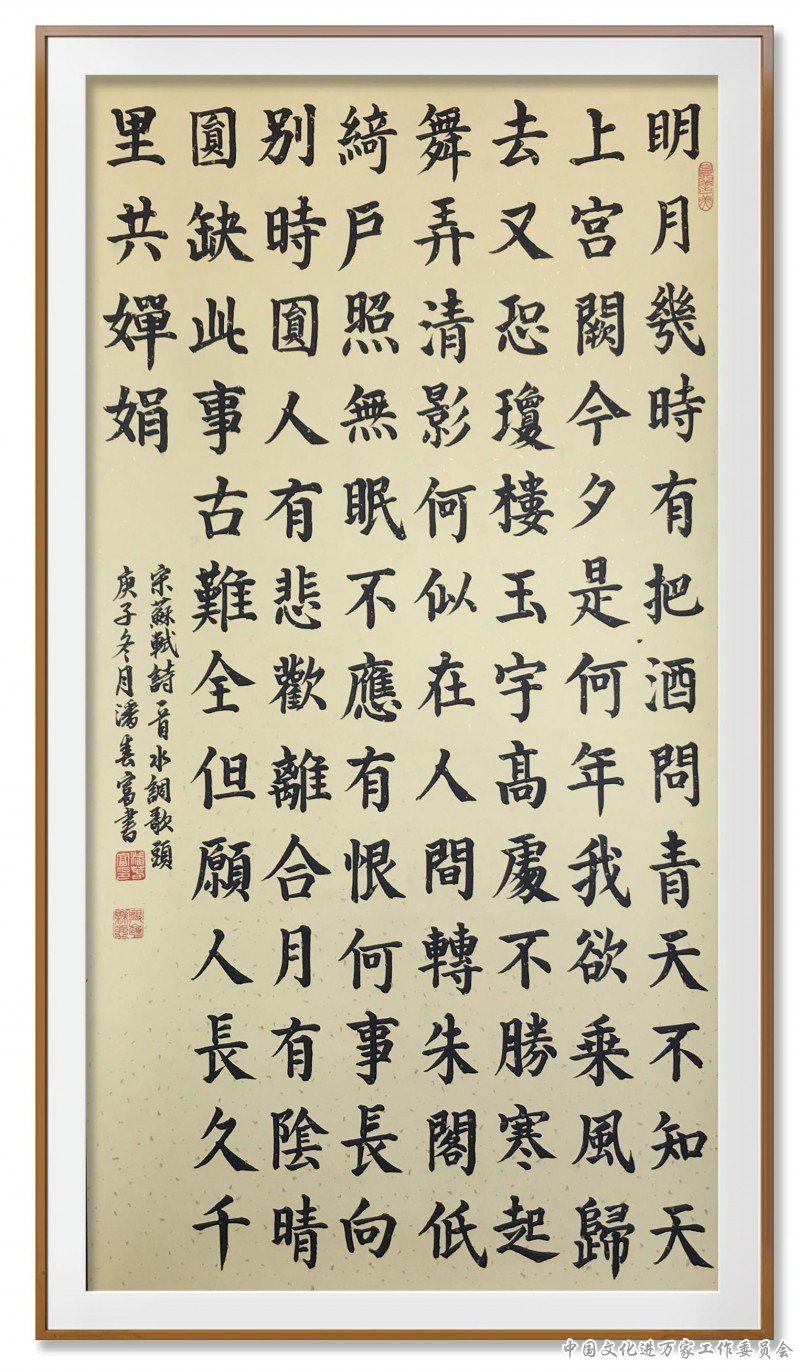 明月幾時有把酒問青天不知天
上宮闕今夕是何年我欲乘風歸
去又恐瓊樓玉宇高處不勝寒起
舞弄清影何似在人間轉朱閣低
綺戶照無眠不應有恨何事長向
別時圓人有悲歡離合月有陰晴
圓缺此事古難全但願人長久千
里共嬋娟
宋蘇軾詩一首水調歌頭
庚子冬月潘春富書
中国文化进万家工作委员会